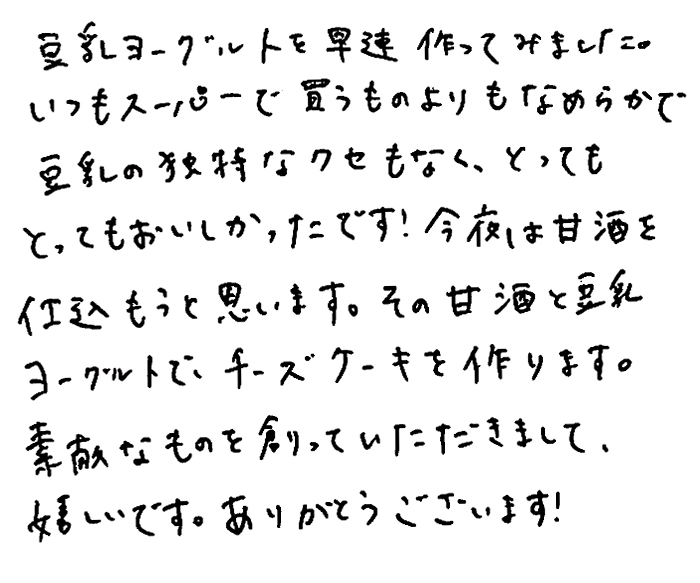 豆乳ヨーグルトを早速作ってみました。
いつもスーパーで買うものよりもなめらかで
豆乳の独特なクセもなく、とっても
とってもおいしかったです!今夜は甘酒を
仕込もうと思います。その甘酒と豆乳
ヨーグルトで、チーズケーキを作ります。
素敵なものを創っていただきまして、
嬉しいです。ありがとうございます!